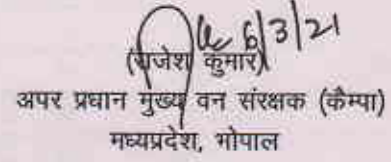 6/3/21
(राजेश कुमार)
अपर प्रधान मुख्य वन संरक्षक (कैम्पा)
मध्यप्रदेश, भोपाल